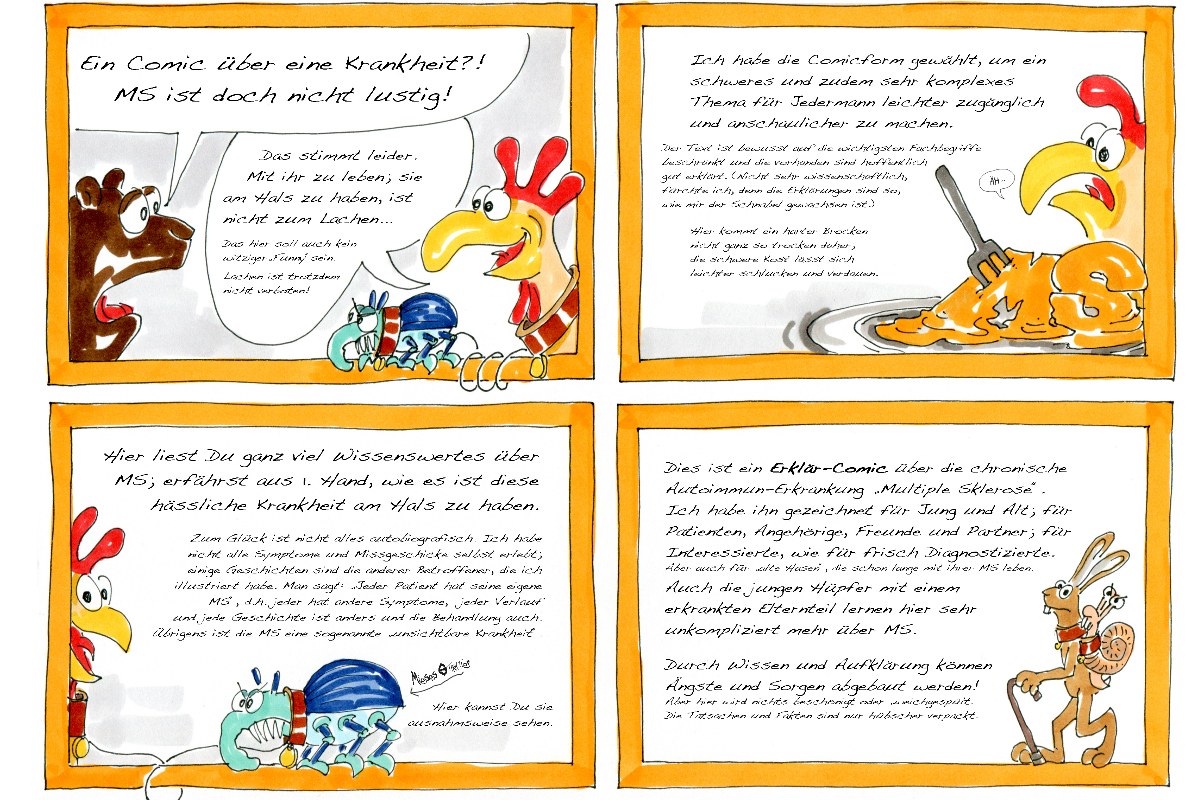 Ein Comic über eine Krankheit?!
MS ist doch nicht lustig!
Das stimmt leider.
Mit ihr zu leben, sie
am Hals zu haben, ist
nicht zum Lachen...
Das hier soll auch kein
witziger „Funny“ sein.
Lachen ist trotzdem
nicht verboten!
Ich habe die Comicform gewählt, um ein
schweres und zudem sehr komplexes
Thema für Jedermann leichter zugänglich
und anschaulicher zu machen.
Der Text ist bewusst auf die wichtigsten Fachbegriffe
beschränkt und die vorhanden sind hoffentlich
gut erklärt. (Nicht sehr wissenschaftlich,
fürchte ich, denn die Erklärungen sind so,
wie mir der Schnabel gewachsen ist.)
Hier kommt ein harter Brocken
nicht ganz so trocken daher,
die schwere Kost lässt sich
leichter schlucken und verdauen.
MS
Hier liest Du ganz viel Wissenswertes über
MS; erfährst aus 1. Hand, wie es ist diese
hässliche Krankheit am Hals zu haben.
Zum Glück ist nicht alles autobiografisch. Ich habe
nicht alle Symptome und Missgeschicke selbst erlebt;
einige Geschichten sind die anderer Betroffener, die ich
illustriert habe. Man sagt: „Jeder Patient hat seine eigene
MS“, d.h. jeder hat andere Symptome, jeder Verlauf
und jede Geschichte ist anders und die Behandlung auch.
Übrigens ist die MS eine sogenannte „unsichtbare Krankheit“.
Hier kannst Du sie
ausnahmsweise sehen.
Dies ist ein Erklär-Comic über die chronische
Autoimmun-Erkrankung „Multiple Sklerose“.
Ich habe ihn gezeichnet für Jung und Alt; für
Patienten, Angehörige, Freunde und Partner; für
Interessierte, wie für frisch Diagnostizierte.
Aber auch für „alte Hasen“, die schon lange mit ihrer MS leben.
Auch die jungen Hüpfer mit einem
erkrankten Elternteil lernen hier sehr
unkompliziert mehr über MS.
Durch Wissen und Aufklärung können
Ängste und Sorgen abgebaut werden!
Aber hier wird nichts beschönigt oder „weichgespült“.
Die Tatsachen und Fakten sind nur hübscher verpackt.